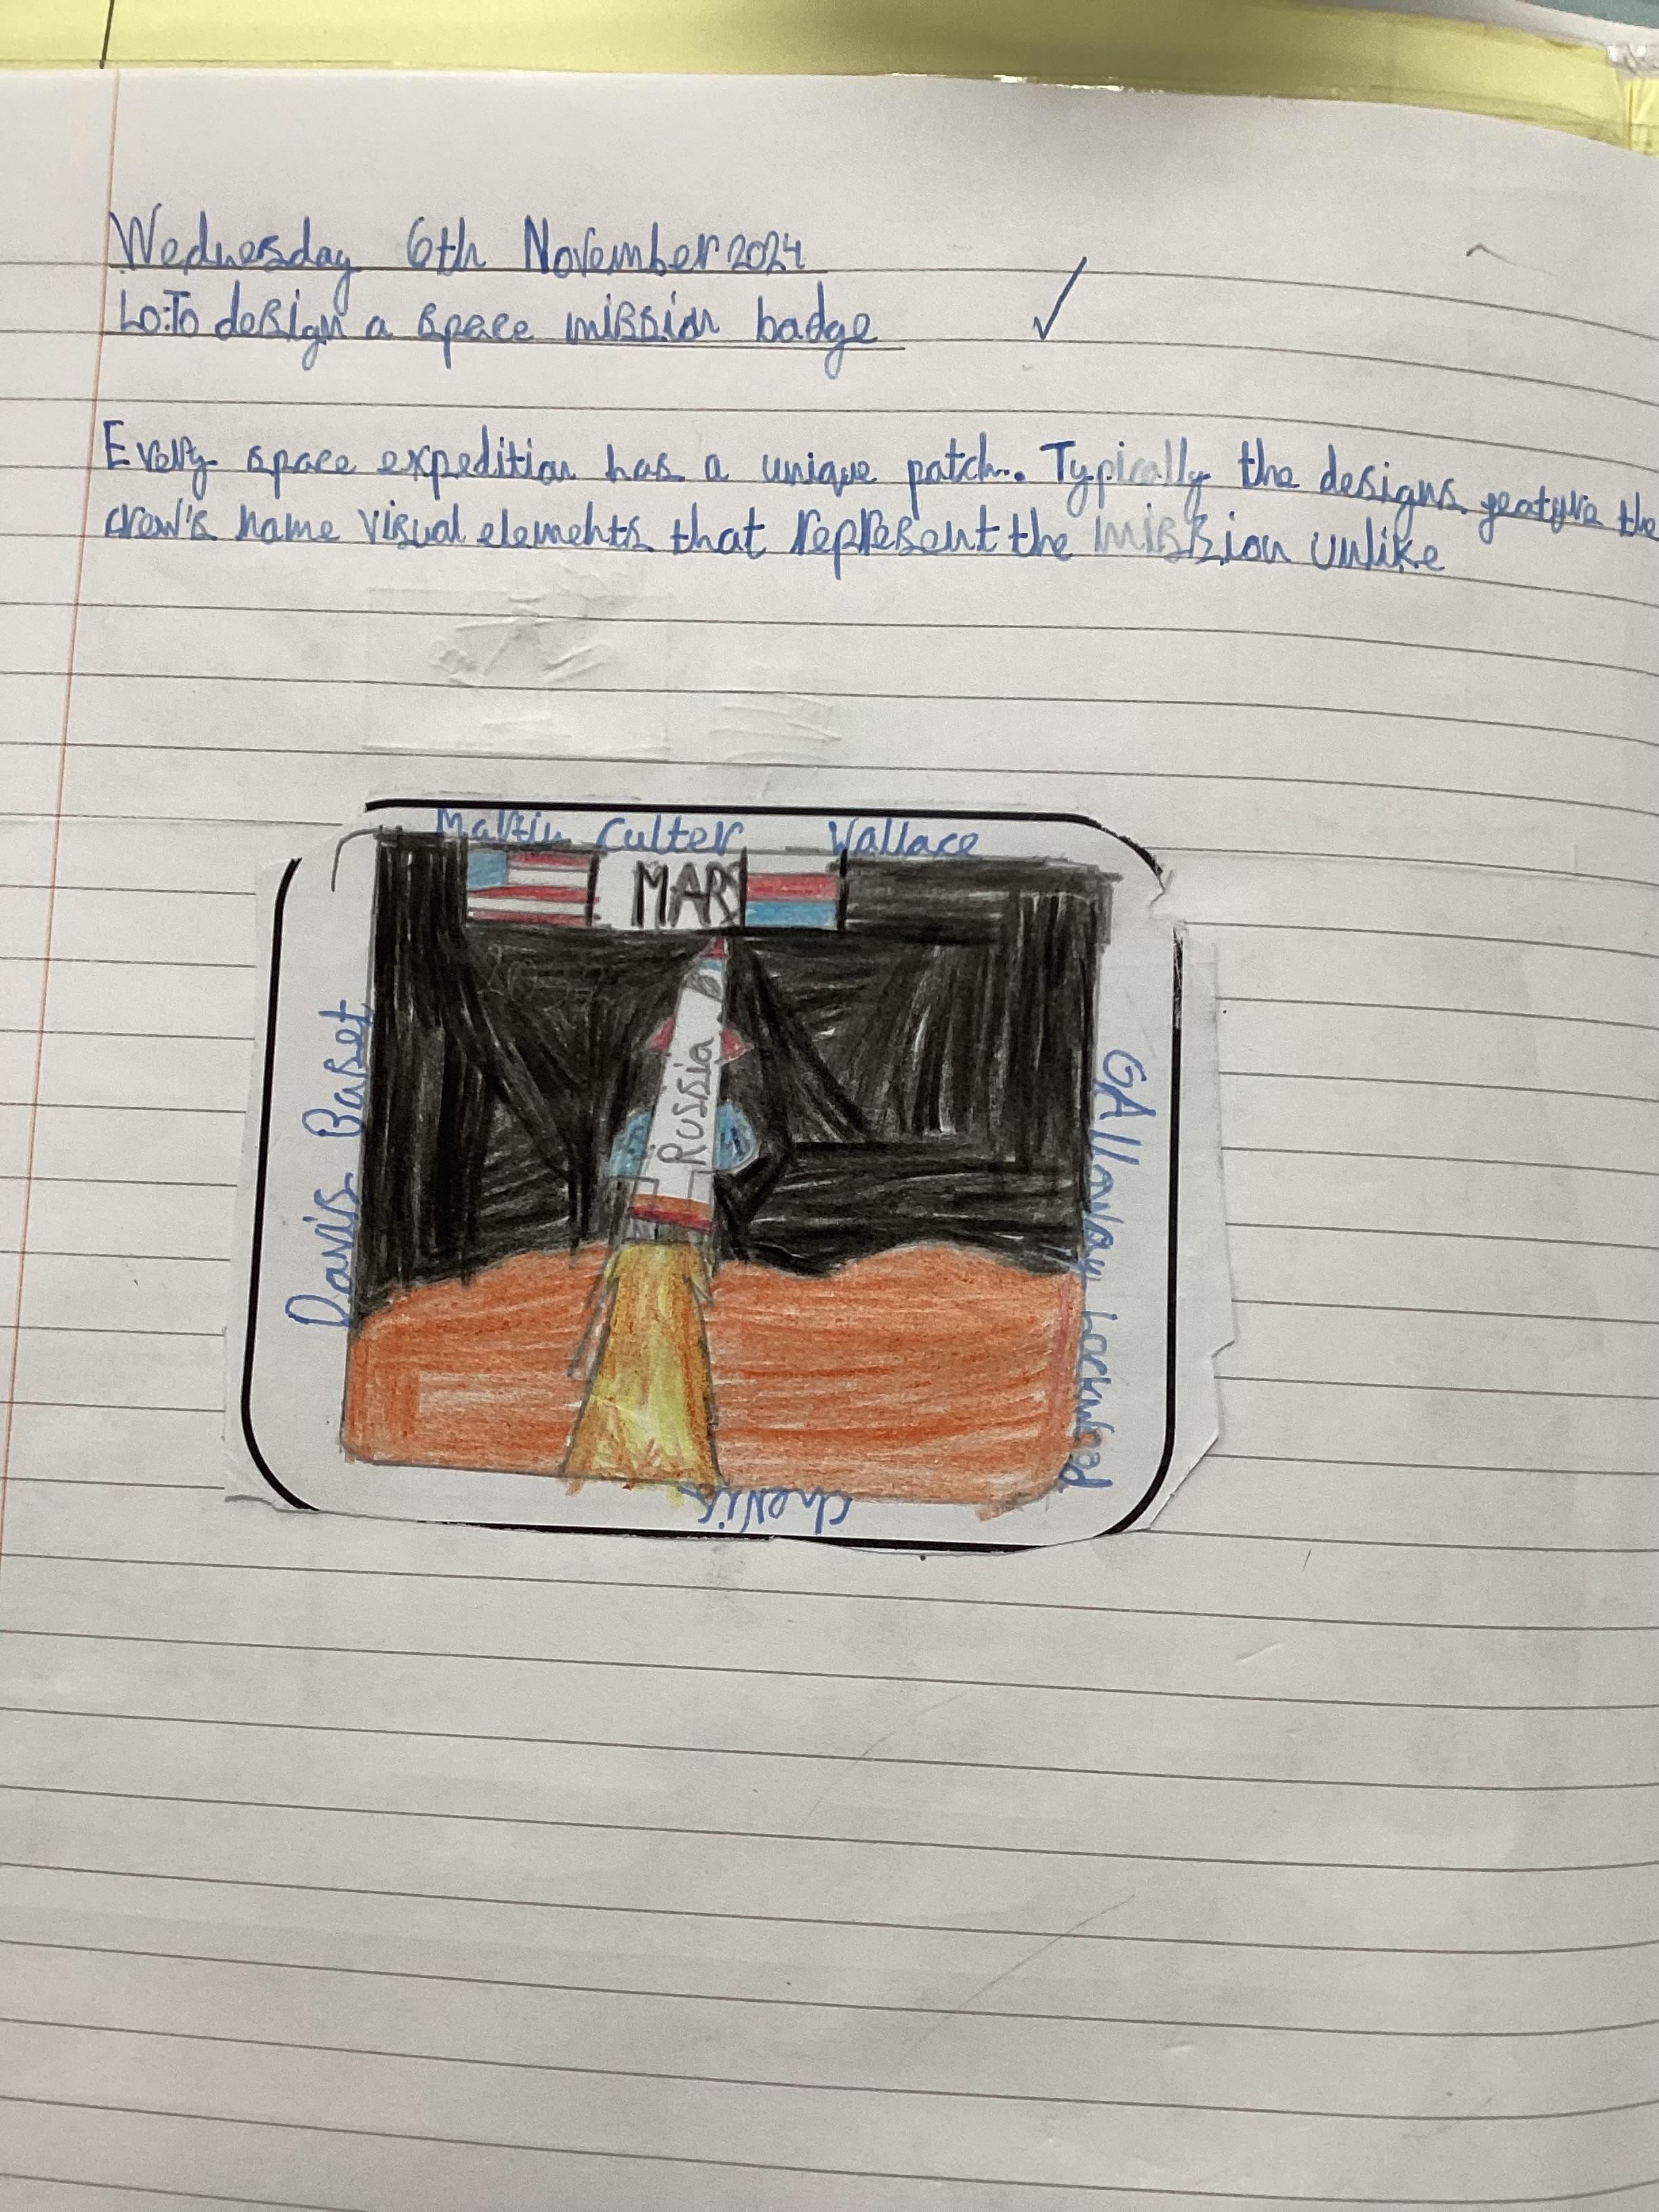 Wednesday 6th November 2024
LO:To design a space mission badge
Every space expedition has a unique patch.. Typically the designs feature the
crew's name visual elements that represent the mission unlike
Martin Culter Wallace
MARS
Russia
Davis Baset
GAllaway Lockwood